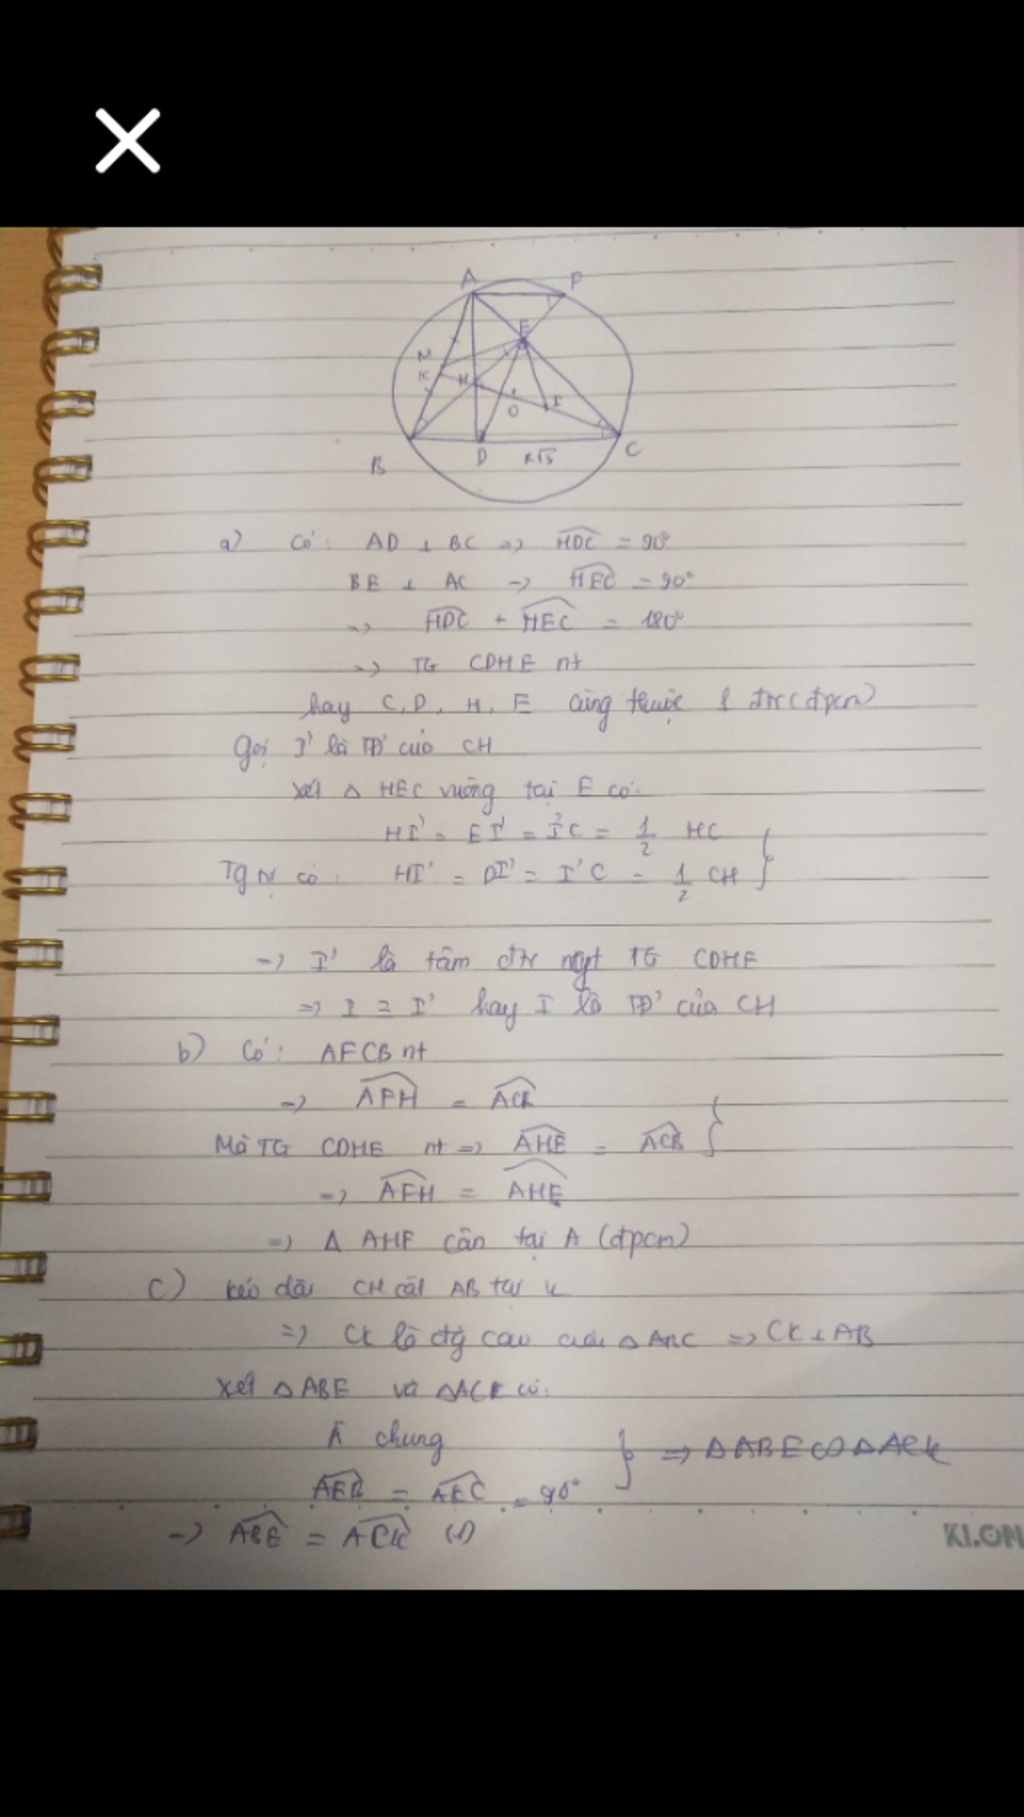 A F
E
M
K H
O I
B D R√3 C
a) Có: AD ⊥ BC => HDC = 90°
BE ⊥ AC -> HEC = 90°
=> HDC + HEC = 180°
=> TG CDHE nt
hay C, D, H, E cùng thuộc 1 đtr (đpcm)
Gọi I' là TĐ' của CH
Xét Δ HEC vuông tại E có:
HI' = EI' = I'C = 1/2 HC
Tg tự có: HI' = DI' = I'C = 1/2 CH }
=> I' là tâm đtr ngt TG CDHE
=> I ≡ I' hay I là TĐ' của CH
b) Có: AFCB nt
=> AFH = ACB
Mà TG CDHE nt => AHE = ACB }
=> AFH = AHE
=> Δ AHF cân tại A (đpcm)
c) kéo dài CH cắt AB tại K
=> CK là đg cao của Δ ABC => CK ⊥ AB
Xét Δ ABE và Δ ACK có:
Â chung
AEB = AKC = 90° } => Δ ABE ∽ Δ ACK
=> ABE = ACK (1)
KLON